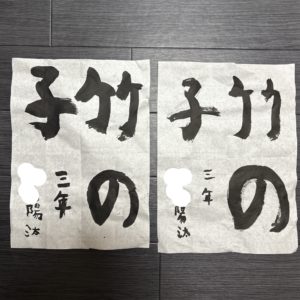 竹の
子
三年
陽汰
竹の
子
三年
陽汰